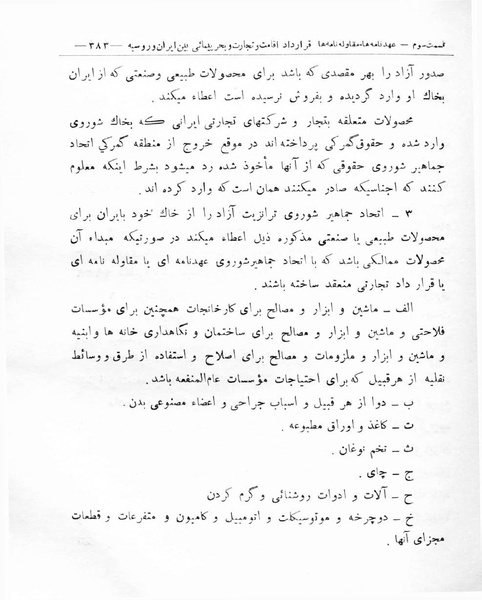 قسمت سوم — عهدنامه ها، مقاوله نامه ها قرارداد اقامت و تجارت و بحر پیمائی بین ایران و روسیه —۳۸۳—
صدور آزاد را بهر مقصدی که باشد برای محصولات طبیعی وصنعتی که از ایران
بخاك او وارد گردیده و بفروش نرسیده است اعطاء میکند.
محصولات متعلقه بتجار و شرکتهای تجارتی ایرانی که بخاك شوروی
وارد شده و حقوق گمرکی پرداخته اند در موقع خروج از منطقه گمرکی اتحاد
جماهیر شوروی حقوقی که از آنها مأخوذ شده رد میشود بشرط اینکه معلوم
کنند که اجناسیکه صادر میکنند همان است که وارد کرده اند .
۳ ـ اتحاد جماهیر شوروی ترانزیت آزاد را از خاك خود بایران برای
محصولات طبیعی یا صنعتی مذکوره ذیل اعطاء میکند در صورتیکه مبداء آن
محصولات ممالکی باشد که با اتحاد جماهیرشوروی عهدنامه ای یا مقاوله نامه ای
یا قرار داد تجارتی منعقد ساخته باشند .
الف ـ ماشین و ابزار و مصالح برای کارخانجات همچنین برای مؤسسات
فلاحتی و ماشین و ابزار و مصالح برای ساختمان و نگاهداری خانه ها وابنیه
و ماشین و ابزار و ملزومات و مصالح برای اصلاح و استفاده از طرق و وسائط
نقلیه از هرقبیل که برای احتیاجات مؤسسات عام‌المنفعه باشد.
ب ـ دوا از هر قبیل و اسباب جراحی و اعضاء مصنوعی بدن .
ت ـ کاغذ و اوراق مطبوعه .
ث ـ تخم نوغان .
ج ـ چای .
ح ـ آلات و ادوات روشنائی و گرم کردن
خ ـ دوچرخه و موتوسیکلت و اتومبیل و کامیون و متفرعات و قطعات
مجزای آنها .